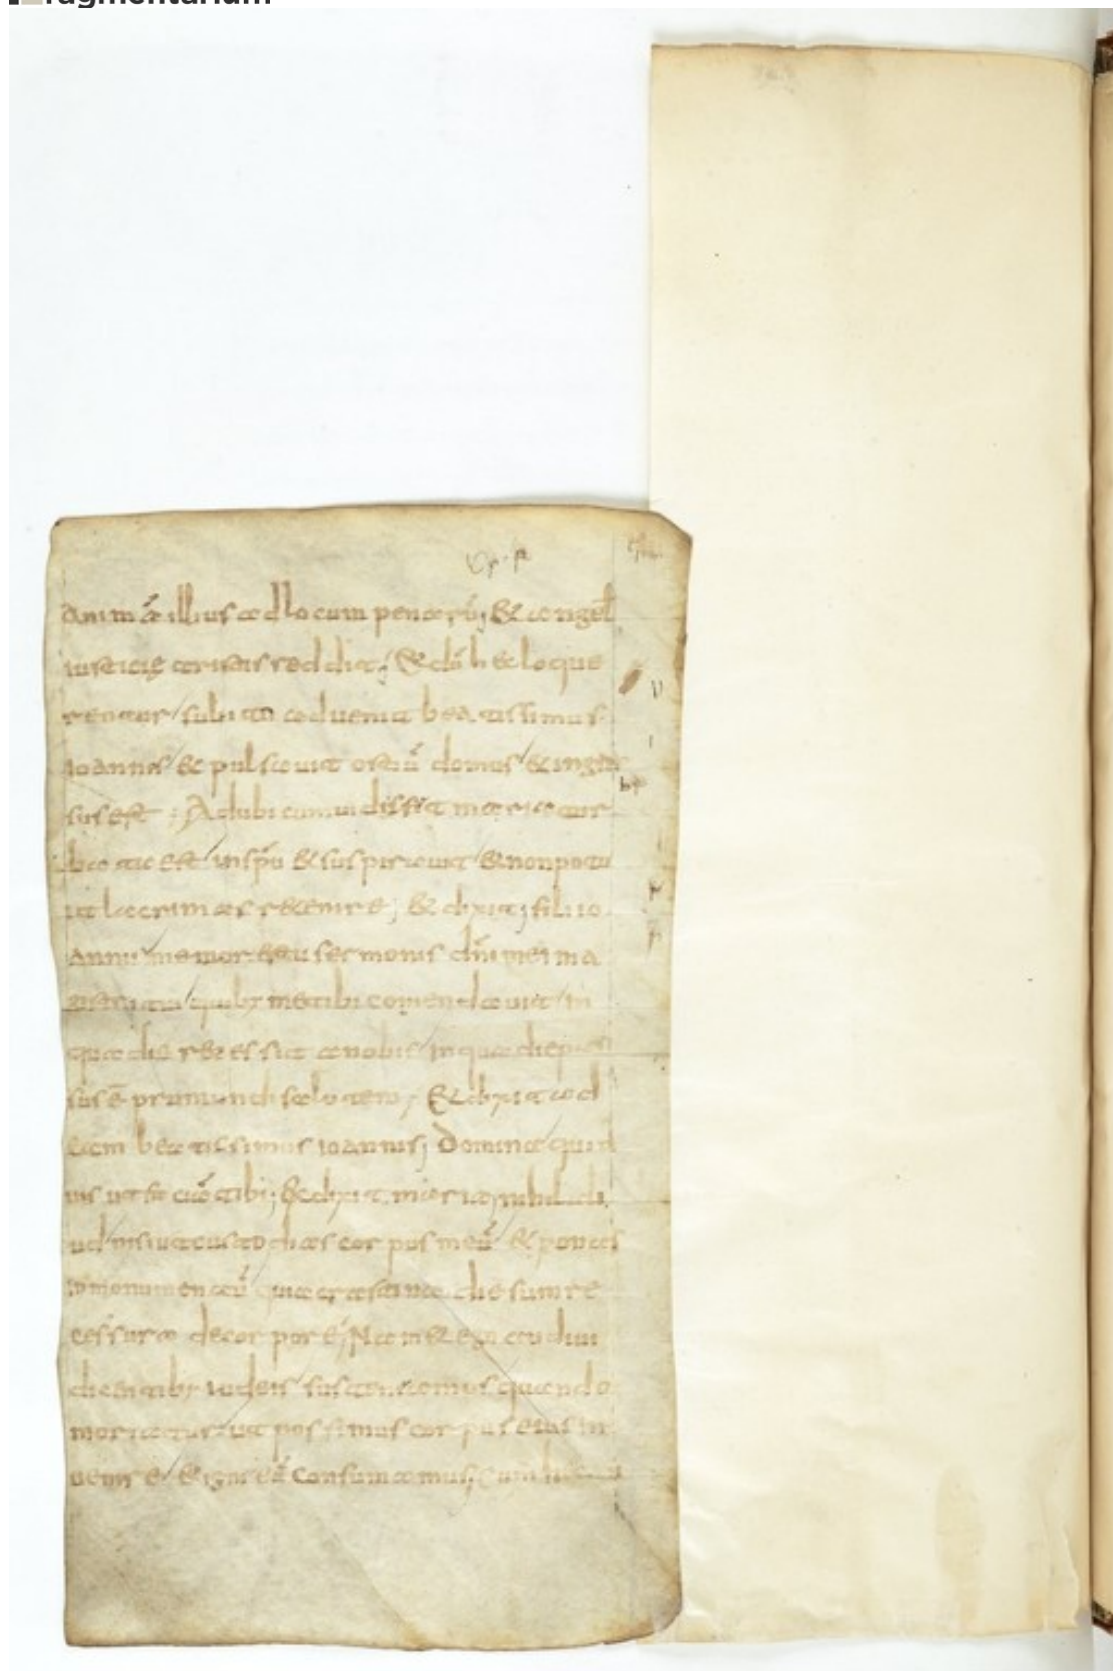 animā illius ad locum penarū; & angel
iusticię tristis reddit; & dū hec loque
rentur subito aduenit beatissimus
ioannes & pulsauit ostiū domus & ingres
sus est; At ubi eum uidissit maria tur
bata est in spū & suspirauit & non potu
it lacrimas retenire; & dixit; fili io
annis memor estu sermonis dñi mei ma
gistri tui quibꝫ me tibi comendauit in
qua die recessit a nobis in qua die pas
sus ē pro mundi salutem; & dixit ad
eam beatissimus ioannis; Domina quid
uis ut fi cuō tibi; & dixit maria; nihil ali
ud nisi ut custodias corpus meū & ponas
in monumentū quia crastina die sum re
cessura de corpore; Nam & ego audiui
dicentibꝫ iudeis susteneamus quando
moriatur ut possimus corpus eius in
uenire & igni eū consumamus; Cum